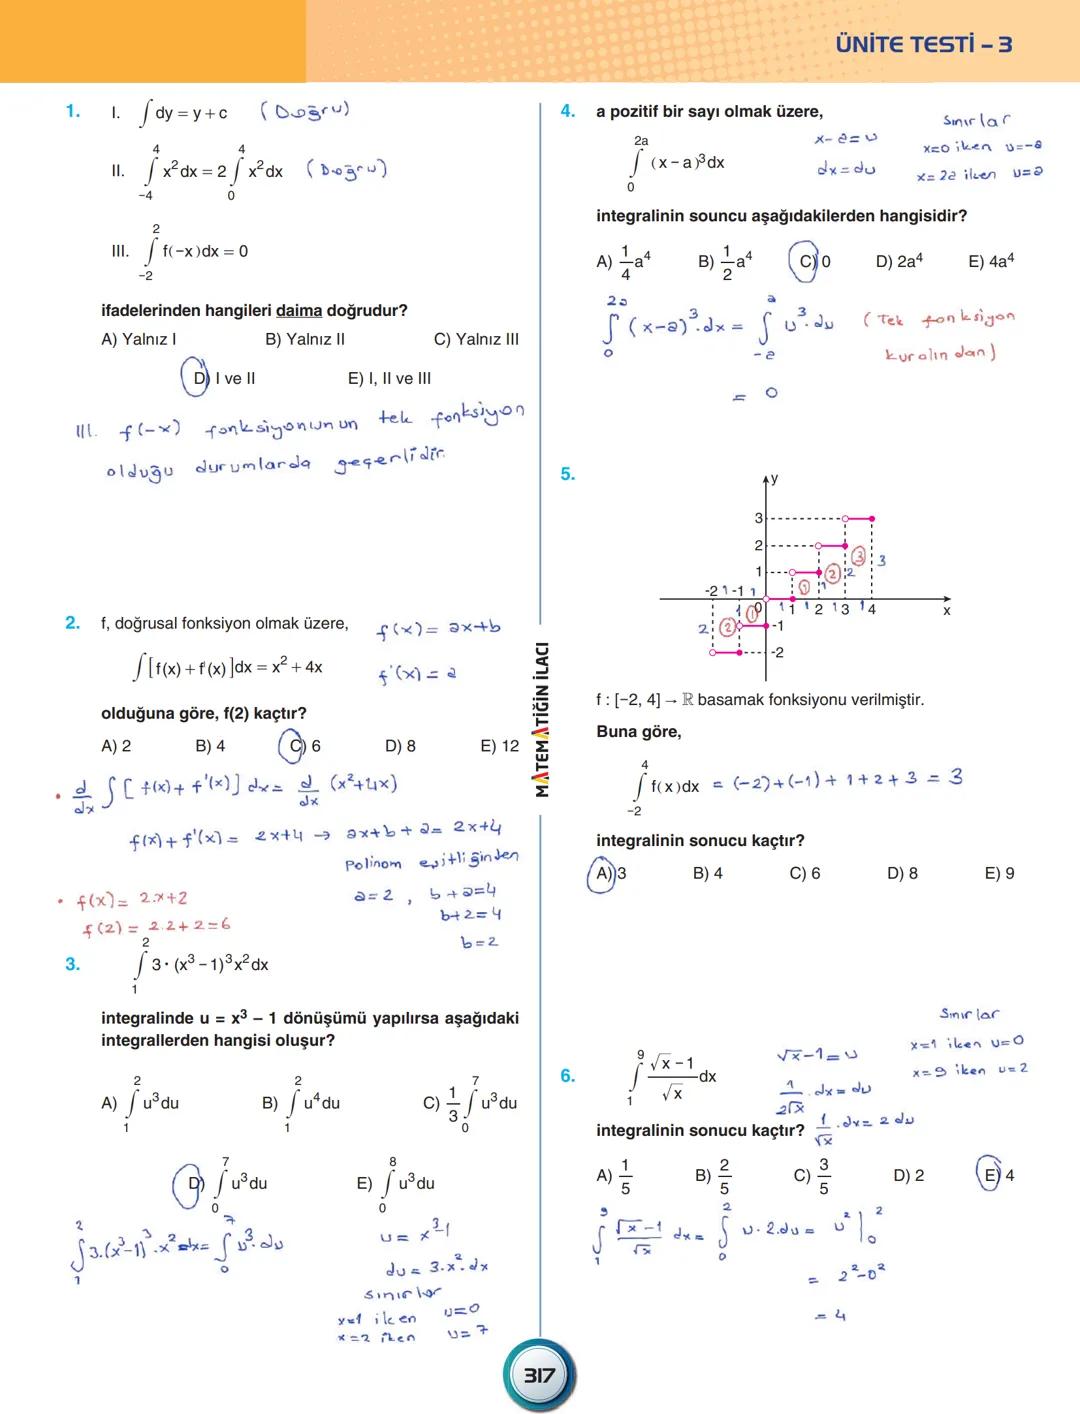 ÜNİTE TESTİ – 3
1. I. ∫ dy = y + c (Doğru)
II. ∫_{-4}^{4} x² dx = 2 ∫_{0}^{4} x² dx (Doğru)
III. ∫_{-2}^{2} f(-x)dx = 0
ifadelerinden hangileri daima doğrudur?
A) Yalnız I B) Yalnız II C) Yalnız III
D) I ve II E) I, II ve III
III. f(-x) fonksiyonunun tek fonksiyon
olduğu durumlarda geçerlidir.
2. f, doğrusal fonksiyon olmak üzere, f(x) = ax+b
∫ [f(x) + f'(x)]dx = x² + 4x f'(x) = a
olduğuna göre, f(2) kaçtır?
A) 2 B) 4 C) 6 D) 8 E) 12
• d/dx ∫ [f(x) + f'(x)] dx = d/dx (x²+4x)
f(x) + f'(x) = 2x+4 → ax+b+a = 2x+4
Polinom eşitliğinden
a=2, b+a=4
b+2=4
b=2
• f(x) = 2.x+2
f(2) = 2.2+2=6
3. ∫_{1}^{2} 3·(x³ – 1)³x² dx
integralinde u = x³ – 1 dönüşümü yapılırsa aşağıdaki
integrallerden hangisi oluşur?
A) ∫_{1}^{2} u³ du B) ∫_{1}^{2} u⁴ du C) 1/3 ∫_{0}^{7} u³ du
D) ∫_{0}^{7} u³ du E) ∫_{0}^{8} u³ du
∫_{1}^{2} 3.(x³-1)³.x² dx = ∫_{0}^{7} u³.du
u = x³-1
du = 3.x².dx
sınırlar
x=1 iken u=0
x=2 iken u=7
MATEMATİĞİN İLACI
4. a pozitif bir sayı olmak üzere,
∫_{0}^{2a} (x – a)³ dx
x-a=u
dx=du
Sınırlar
x=0 iken u=-a
x=2a iken u=a
integralinin souncu aşağıdakilerden hangisidir?
A) 1/4 a⁴ B) 1/2 a⁴ C) 0 D) 2a⁴ E) 4a⁴
∫_{0}^{2a} (x-a)³.dx = ∫_{-a}^{a} u³.du (Tek fonksiyon
kuralından)
= 0
5.
y
3
2
1
-2 1 -1 1 0 1 1 1 2 1 3 1 4 x
-1
-2
1 2 3
1 2 3
1 2
2 1
f : [–2, 4] → ℝ basamak fonksiyonu verilmiştir.
Buna göre,
∫_{-2}^{4} f(x)dx = (-2)+(-1)+1+2+3 = 3
integralinin sonucu kaçtır?
A) 3 B) 4 C) 6 D) 8 E) 9
6. ∫_{1}^{9} (√x – 1)/√x dx
√x-1=u
1/(2√x) . dx = du
1/√x . dx = 2du
Sınırlar
x=1 iken u=0
x=9 iken u=2
integralinin sonucu kaçtır?
A) 1/5 B) 2/5 C) 3/5 D) 2 E) 4
∫_{1}^{9} (√x-1)/√x dx = ∫_{0}^{2} u.2.du = u²|_{0}^{2}
= 2²-0²
= 4
317